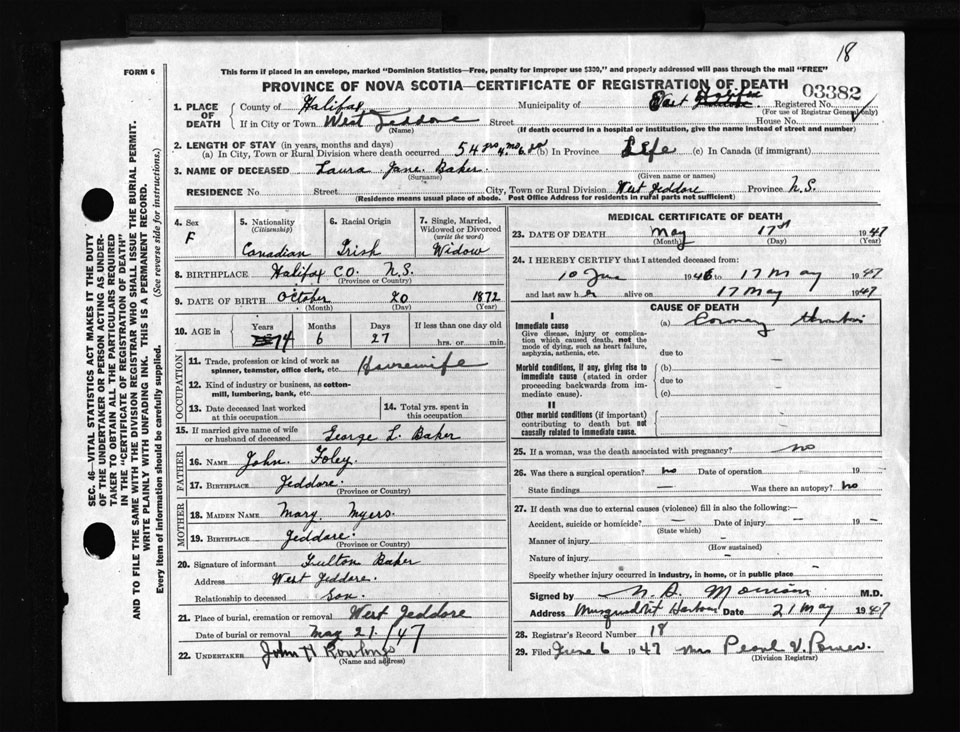 18
FORM 6
This form if placed in an envelope, marked "Dominion Statistics—Free, penalty for improper use $300," and properly addressed will pass through the mail "FREE"
PROVINCE OF NOVA SCOTIA—CERTIFICATE OF REGISTRATION OF DEATH
03382
1. PLACE OF DEATH
County of Halifax Municipality of East Halifax Registered No.
(For use of Registrar General only)
If in City or Town West Jeddore Street House No.
(Name) (If death occurred in a hospital or institution, give the name instead of street and number)
2. LENGTH OF STAY (in years, months and days)
(a) In City, Town or Rural Division where death occurred 54 yrs 4 mo 6 da (b) In Province Life (c) In Canada (if immigrant)
3. NAME OF DECEASED Laura Jane Baker
(Surname) (Given name or names)
RESIDENCE No. Street City, Town or Rural Division West Jeddore Province N.S.
(Residence means usual place of abode. Post Office Address for residents in rural parts not sufficient)
SEC. 46—VITAL STATISTICS ACT MAKES IT THE DUTY
OF THE UNDERTAKER OR PERSON ACTING AS UNDER-
TAKER TO OBTAIN ALL THE PARTICULARS REQUIRED
IN THE "CERTIFICATE OF REGISTRATION OF DEATH"
AND TO FILE THE SAME WITH THE DIVISION REGISTRAR WHO SHALL ISSUE THE BURIAL PERMIT.
WRITE PLAINLY WITH UNFADING INK. THIS IS A PERMANENT RECORD.
Every item of information should be carefully supplied. (See reverse side for instructions.)
4. Sex
F
5. Nationality
(Citizenship)
Canadian
6. Racial Origin
Irish
7. Single, Married, Widowed or Divorced
(write the word)
Widow
8. BIRTHPLACE Halifax Co. N.S.
(Province or Country)
9. DATE OF BIRTH October 20 1872
(Month) (Day) (Year)
10. AGE in Years Months Days If less than one day old
74 6 27 hrs. or min.
OCCUPATION
11. Trade, profession or kind of work as
spinner, teamster, office clerk, etc. Housewife
12. Kind of industry or business, as cotton-
mill, lumbering, bank, etc.
13. Date deceased last worked
at this occupation
14. Total yrs. spent in
this occupation
15. If married give name of wife
or husband of deceased George L. Baker
FATHER
16. Name John Foley
17. Birthplace Jeddore
(Province or Country)
MOTHER
18. Maiden Name Mary Myers.
19. Birthplace Jeddore.
(Province or Country)
20. Signature of informant Fulton Baker
Address West Jeddore.
Relationship to deceased Son.
21. Place of burial, cremation or removal West Jeddore
Date of burial or removal May 21. /47
22. UNDERTAKER John H Rowlings
(Name and address)
MEDICAL CERTIFICATE OF DEATH
23. DATE OF DEATH May 17th 1947
(Month) (Day) (Year)
24. I HEREBY CERTIFY that I attended deceased from:
10 1946 to 17 May 1947
and last saw her alive on 17 May 1947
CAUSE OF DEATH
I
Immediate cause
Give disease, injury or complica-
tion which caused death, not the
mode of dying, such as heart failure,
asphyxia, asthenia, etc.
(a) Coronary thrombosis
due to
Morbid conditions, if any, giving rise to
immediate cause (stated in order
proceeding backwards from im-
mediate cause).
(b)
due to
(c)
II
Other morbid conditions (if important)
contributing to death but not
causally related to immediate cause.
25. If a woman, was the death associated with pregnancy? no
26. Was there a surgical operation? no Date of operation — 19 —
State findings — Was there an autopsy? no
27. If death was due to external causes (violence) fill in also the following:—
Accident, suicide or homicide? — Date of injury — 19 —
(State which)
Manner of injury —
(How sustained)
Nature of injury —
Specify whether injury occurred in industry, in home, or in public place —
Signed by Morrison M.D.
Address Musquodoboit Harbour Date 21 May 1947
28. Registrar's Record Number 18
29. Filed June 6 1947 Mrs Pearl V.
(Division Registrar)